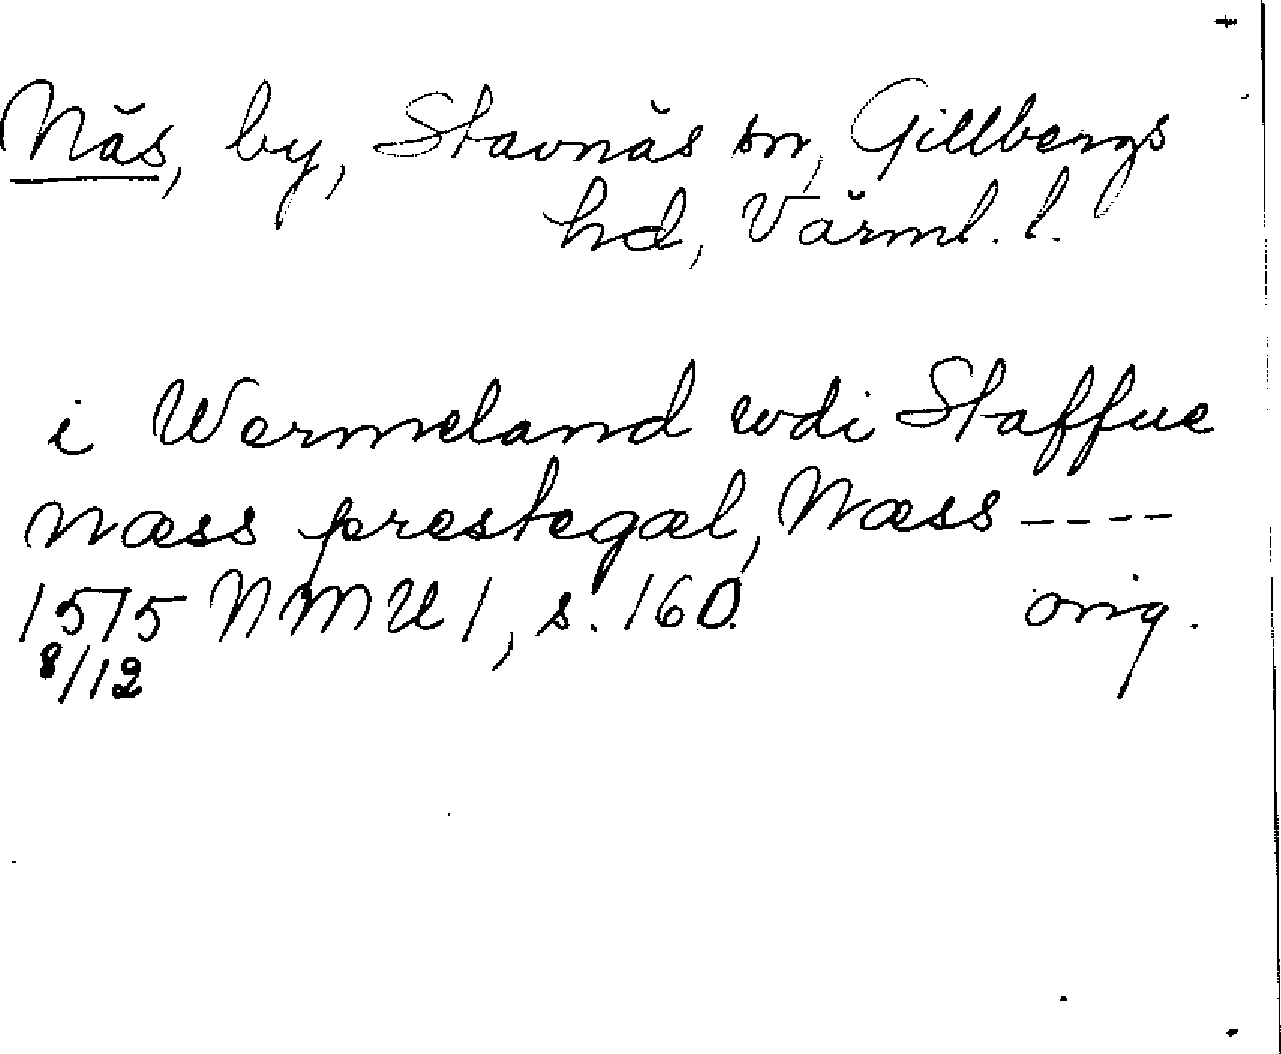 Näs, by, Stavnäs sn, Gillbergs
hd, Värml. l.
i Wermeland wdi Staffue
næss prestegæl, Næss ----
1515 NMU 1, s. 160. orig.
8/12